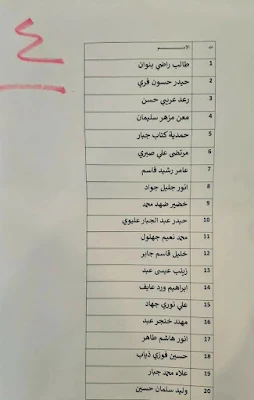 ٤
ت الاسم
1 طالب راضي بنوان
2 حيدر حسون فري
3 رعد عريبي حسن
4 معن مزهر سليمان
5 حمدية كتاب جبار
6 مرتضى علي صبري
7 عامر رشيد قاسم
8 انور جليل جواد
9 خضير ضهد محمد
10 حيدر عبد الجبار عليوي
11 محمد نعيم جهلول
12 خليل قاسم جابر
13 زينب عيسى عبد
14 ابراهيم ورد عايف
15 علي نوري جهاد
16 مهند خنجر عبد
17 انور هاشم طاهر
18 حسين فوزي ذياب
19 علاء محمد جبار
20 وليد سلمان حسين